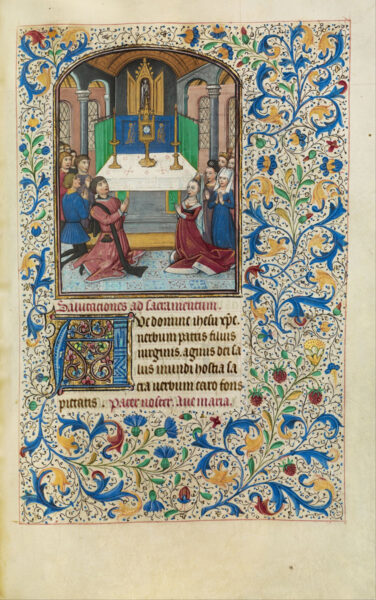 Salutationes ad sacramentum.
Ave domine ihesu xp̄e
uerbum patris filius
uirginis. agnus dei sa
lus mundi hostia sa
cra uerbum caro fons
pietatis. Pater noster. Aue maria.